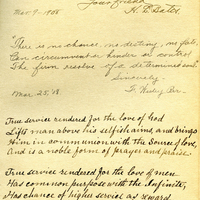 Your friend
Mar 9 - 1908 H. L. Bates.
"There is no chance, no destiny, no fate,
Can circumvent or hinder or control
The firm resolve of a determined soul."
Sincerely.
Mar. 25, '08.
True service rendered for the love of God
Lifts man above his selfish aims, and brings
Him in communion with the Source of love,
And is a noble form of prayer and praise.
True service rendered for the love of men
Has common purpose with the Infinite,
Has chance of higher service as reward